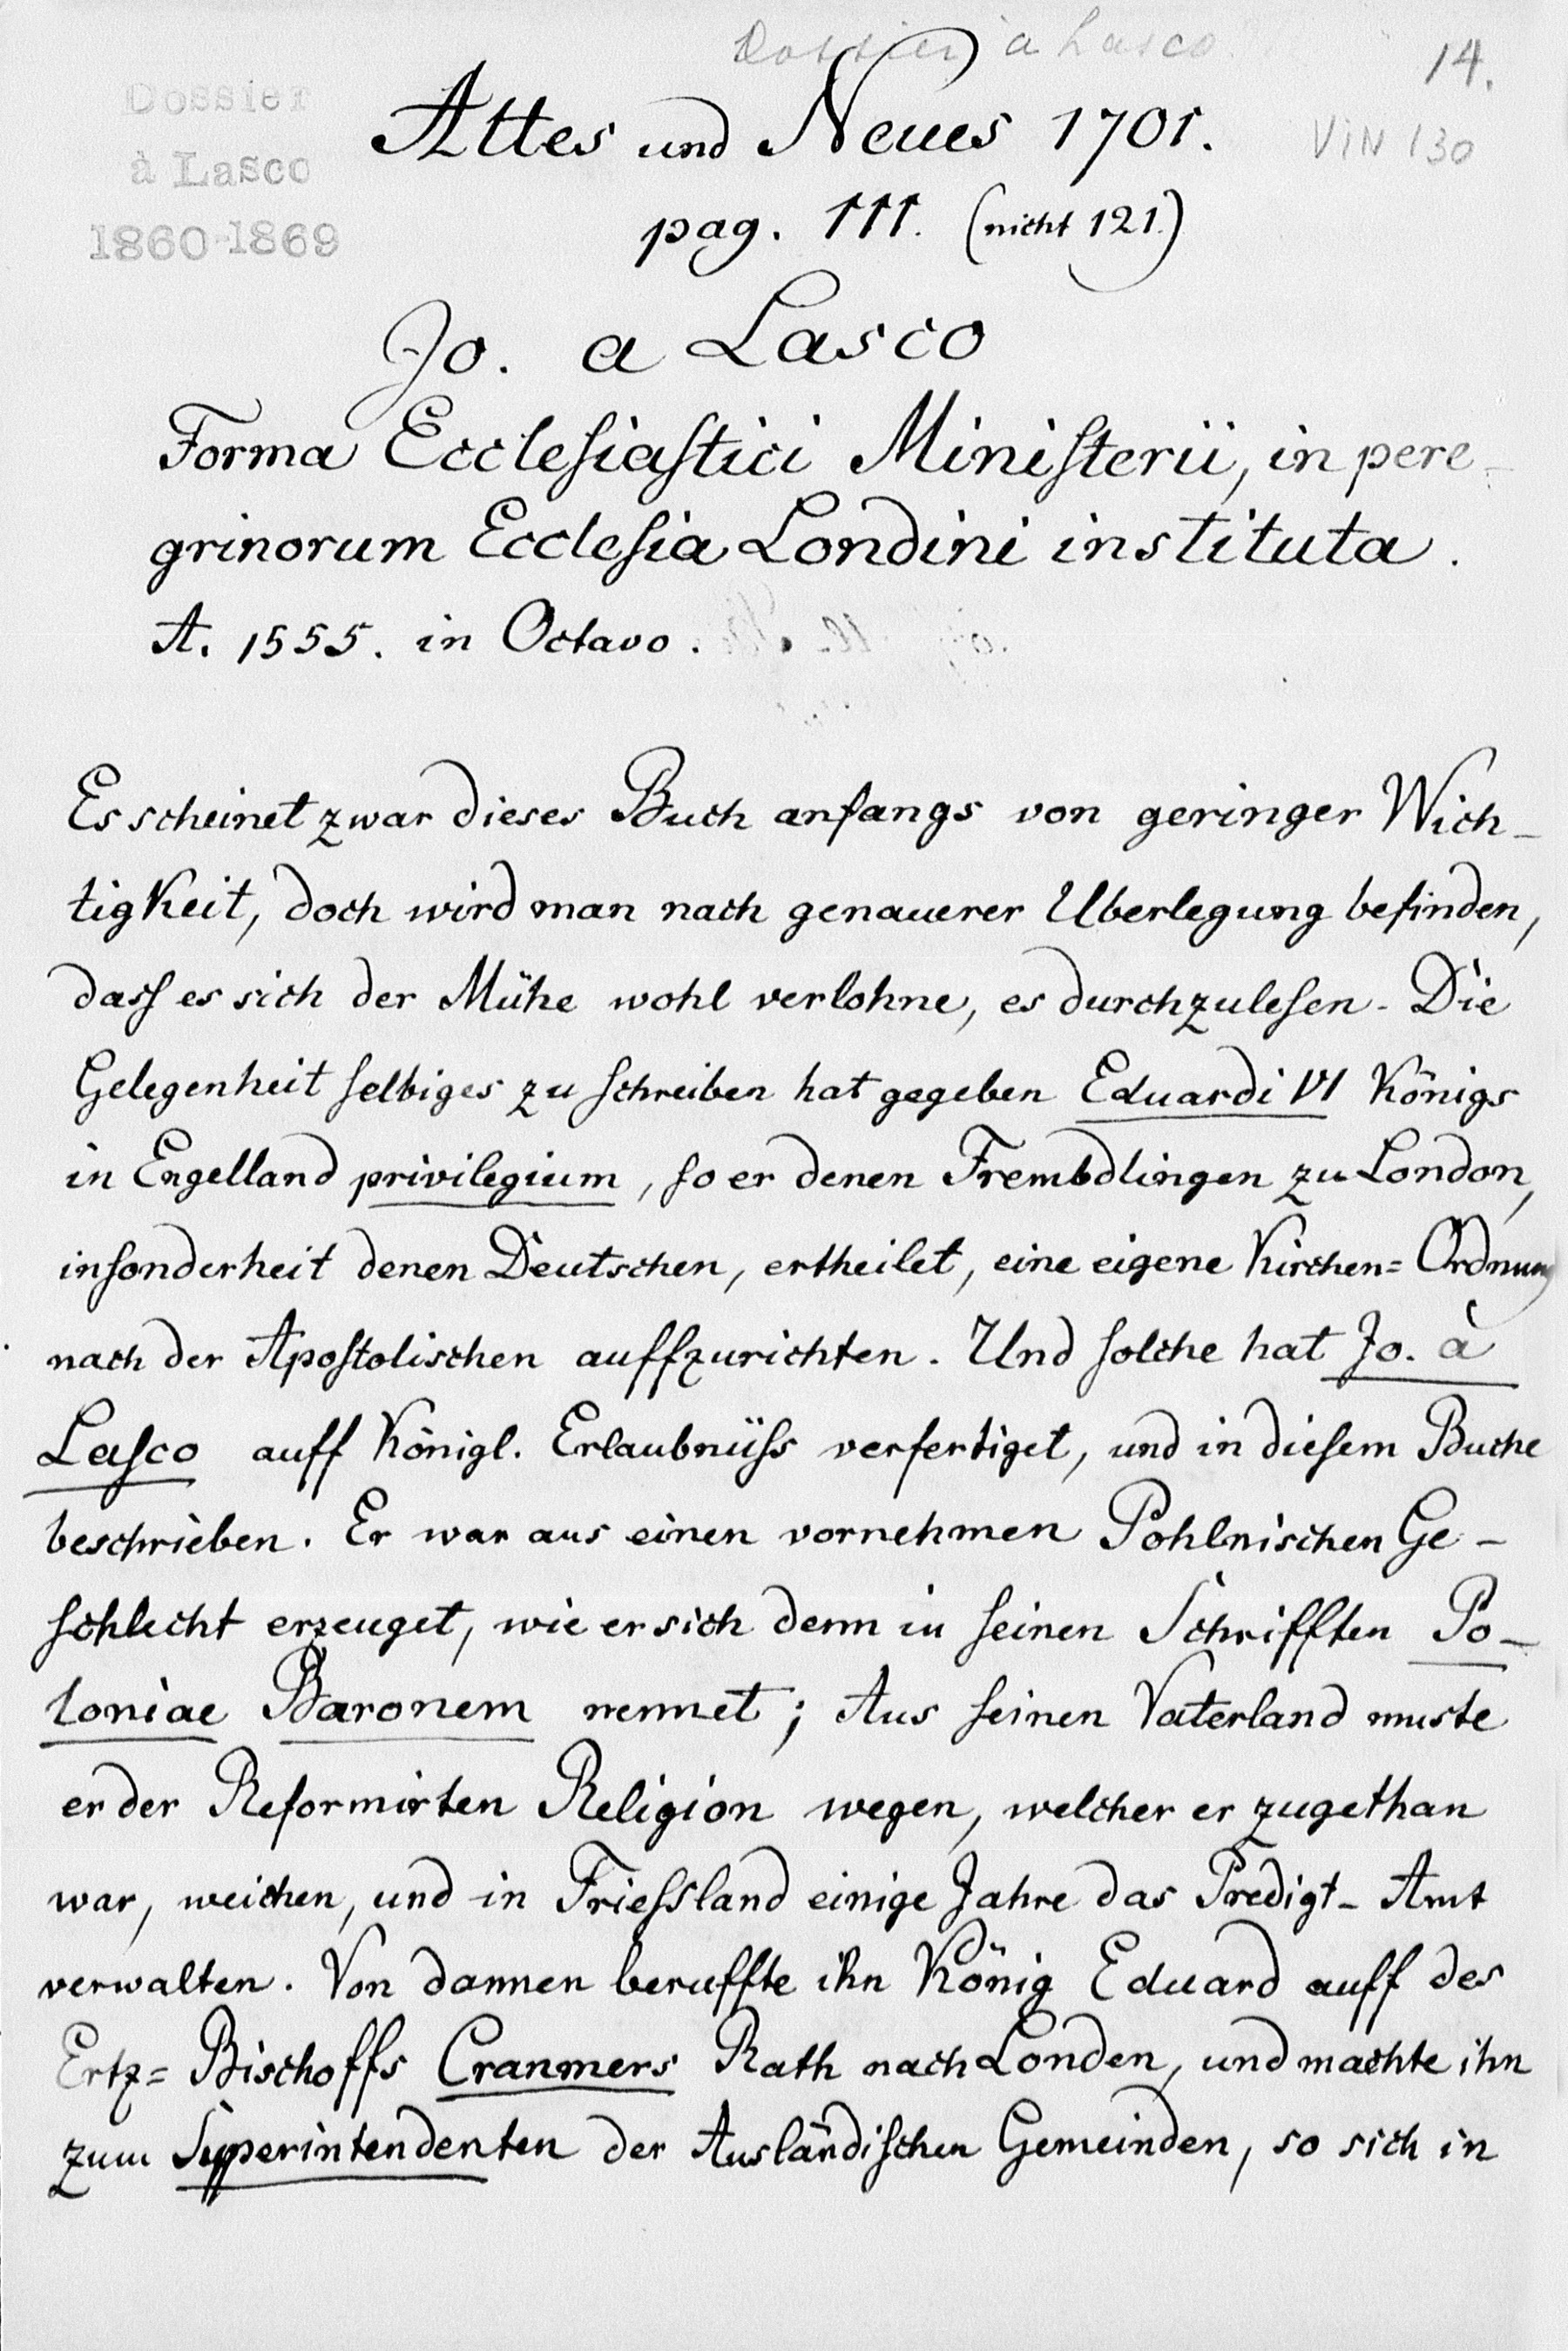 Dossier à Lasco
14.
Dossier
à Lasco
1860-1869
VIN 130
Altes und Neues 1701.
pag. 111. (nicht 121.)
Jo. a Lasco
Forma Ecclesiastici Ministerii, in pere-
grinorum Ecclesia Londini instituta.
A. 1555. in Octavo.
Es scheinet zwar dieses Buch anfangs von geringer Wich-
tigkeit, doch wird man nach genauerer Uberlegung befinden,
dass es sich der Mühe wohl verlohne, es durchzulesen. Die
Gelegenheit selbiges zu schreiben hat gegeben Eduardi VI Königs
in Engelland privilegium, so er denen Frembdlingen zu London,
insonderheit denen Deutschen, ertheilet, eine eigene Kirchen=Ordnung
nach der Apostolischen auffzurichten. Und solche hat Jo. à
Lasco auff Königl. Erlaubnüss verfertiget, und in diesem Buche
beschrieben. Er war aus einen vornehmen Pohlnischen Ge-
schlecht erzeuget, wie er sich denn in seinen Schrifften Po-
loniae Baronem nennet; Aus seinen Vaterland muste
er der Reformirten Religion wegen, welcher er zugethan
war, weichen, und in Friessland einige Jahre das Predigt-Amt
verwalten. Von dannen beruffte ihn König Eduard auff des
Ertz=Bischoffs Cranmers Rath nach Londen, und machte ihn
zum Superintendenten der Ausländischen Gemeinden, so sich in